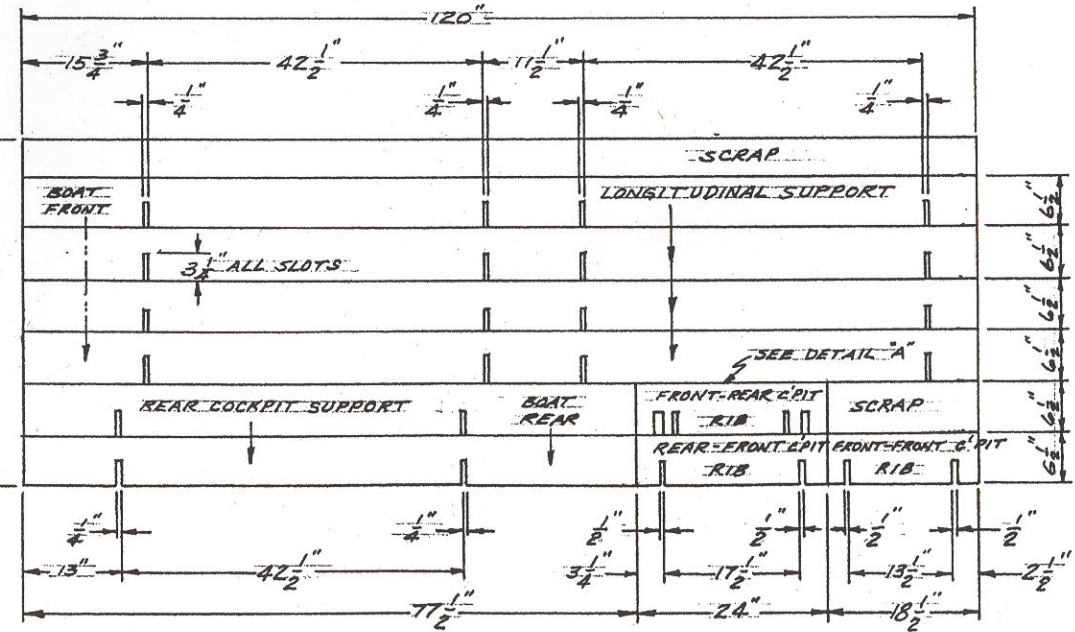 120"
15 3/4" 42 1/2" 11 1/2" 42 1/2"
1/4" 1/4" 1/4" 1/4"
SCRAP
BOAT
FRONT
LONGITUDINAL SUPPORT
6 1/2"
3 1/4" ALL SLOTS
6 1/2"
6 1/2"
6 1/2"
SEE DETAIL "A"
REAR COCKPIT SUPPORT
BOAT
REAR
FRONT-REAR C'PIT
RIB
SCRAP
6 1/2"
REAR-FRONT C'PIT
RIB
FRONT-FRONT C'PIT
RIB
6 1/2"
1/4" 1/4" 1/2" 1/2" 1/2" 1/2"
13" 42 1/2" 3 1/4" 17 1/2" 13 1/2" 2 1/2"
77 1/2" 24" 18 1/2"